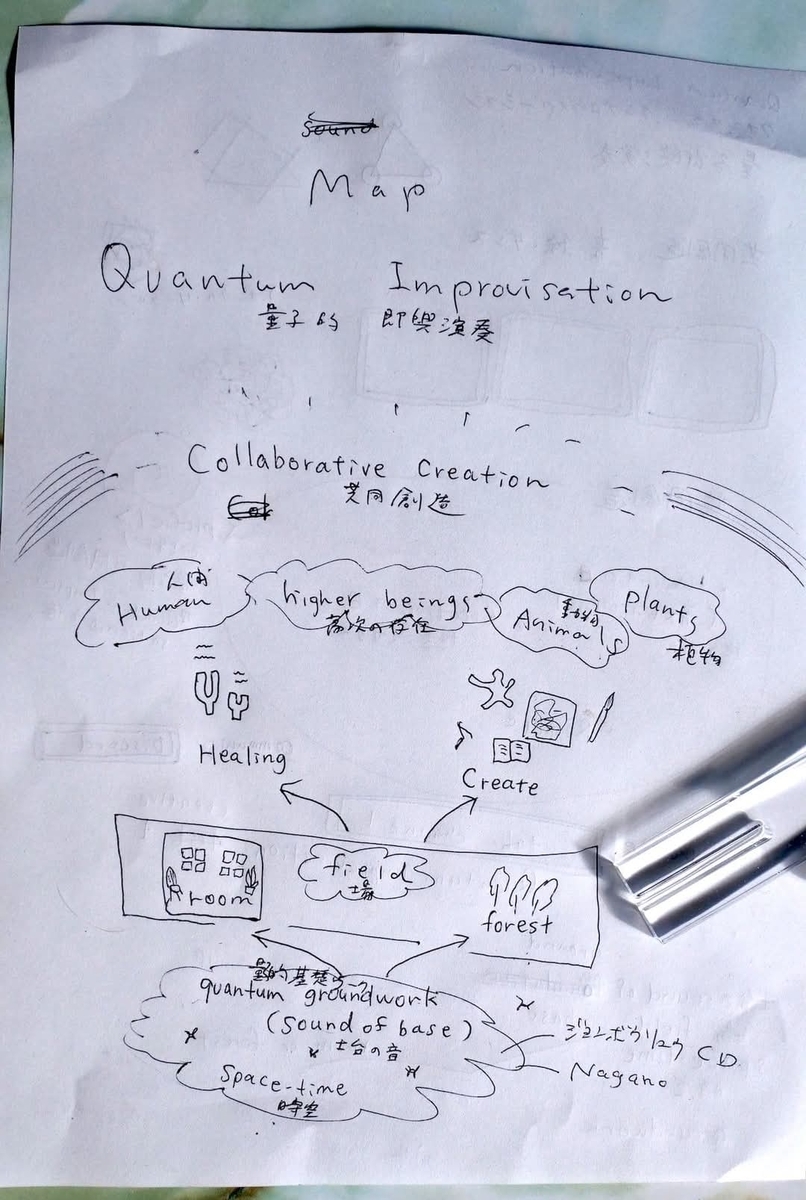 Sound
Map
Quantum Improvisation
量子的 即興演奏
Collaborative Creation
共同創造
Col
人間
Human
higher beings
高次の存在
動物
Animals
Plants
植物
Healing
Create
room
field
場
forest
quantum groundwork
(sound of base)
土台の音
space-time
時空
ジョンボウリュウ CD
Nagano